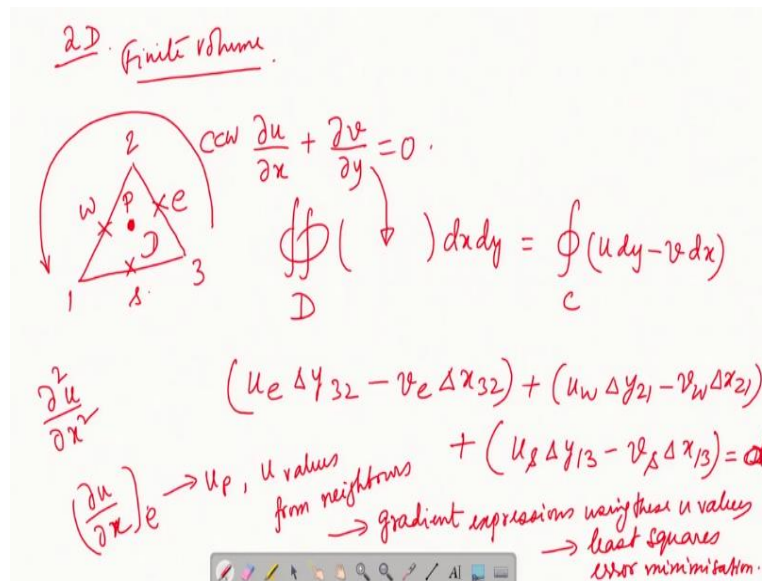 2D. Finite volume.
CCW ∂u/∂x + ∂v/∂y = 0.
2
W P e
D
1 s. 3
∯_D ( ) dxdy = ∮_C (u dy - v dx)
∂²u/∂x²
(u_e Δy_32 - v_e Δx_32) + (u_w Δy_21 - v_w Δx_21)
+ (u_s Δy_13 - v_s Δx_13) = 0
(∂u/∂x)_e → u_P, u values
from neighbours
→ gradient expressions using these u values
→ least squares
error minimisation.
A|